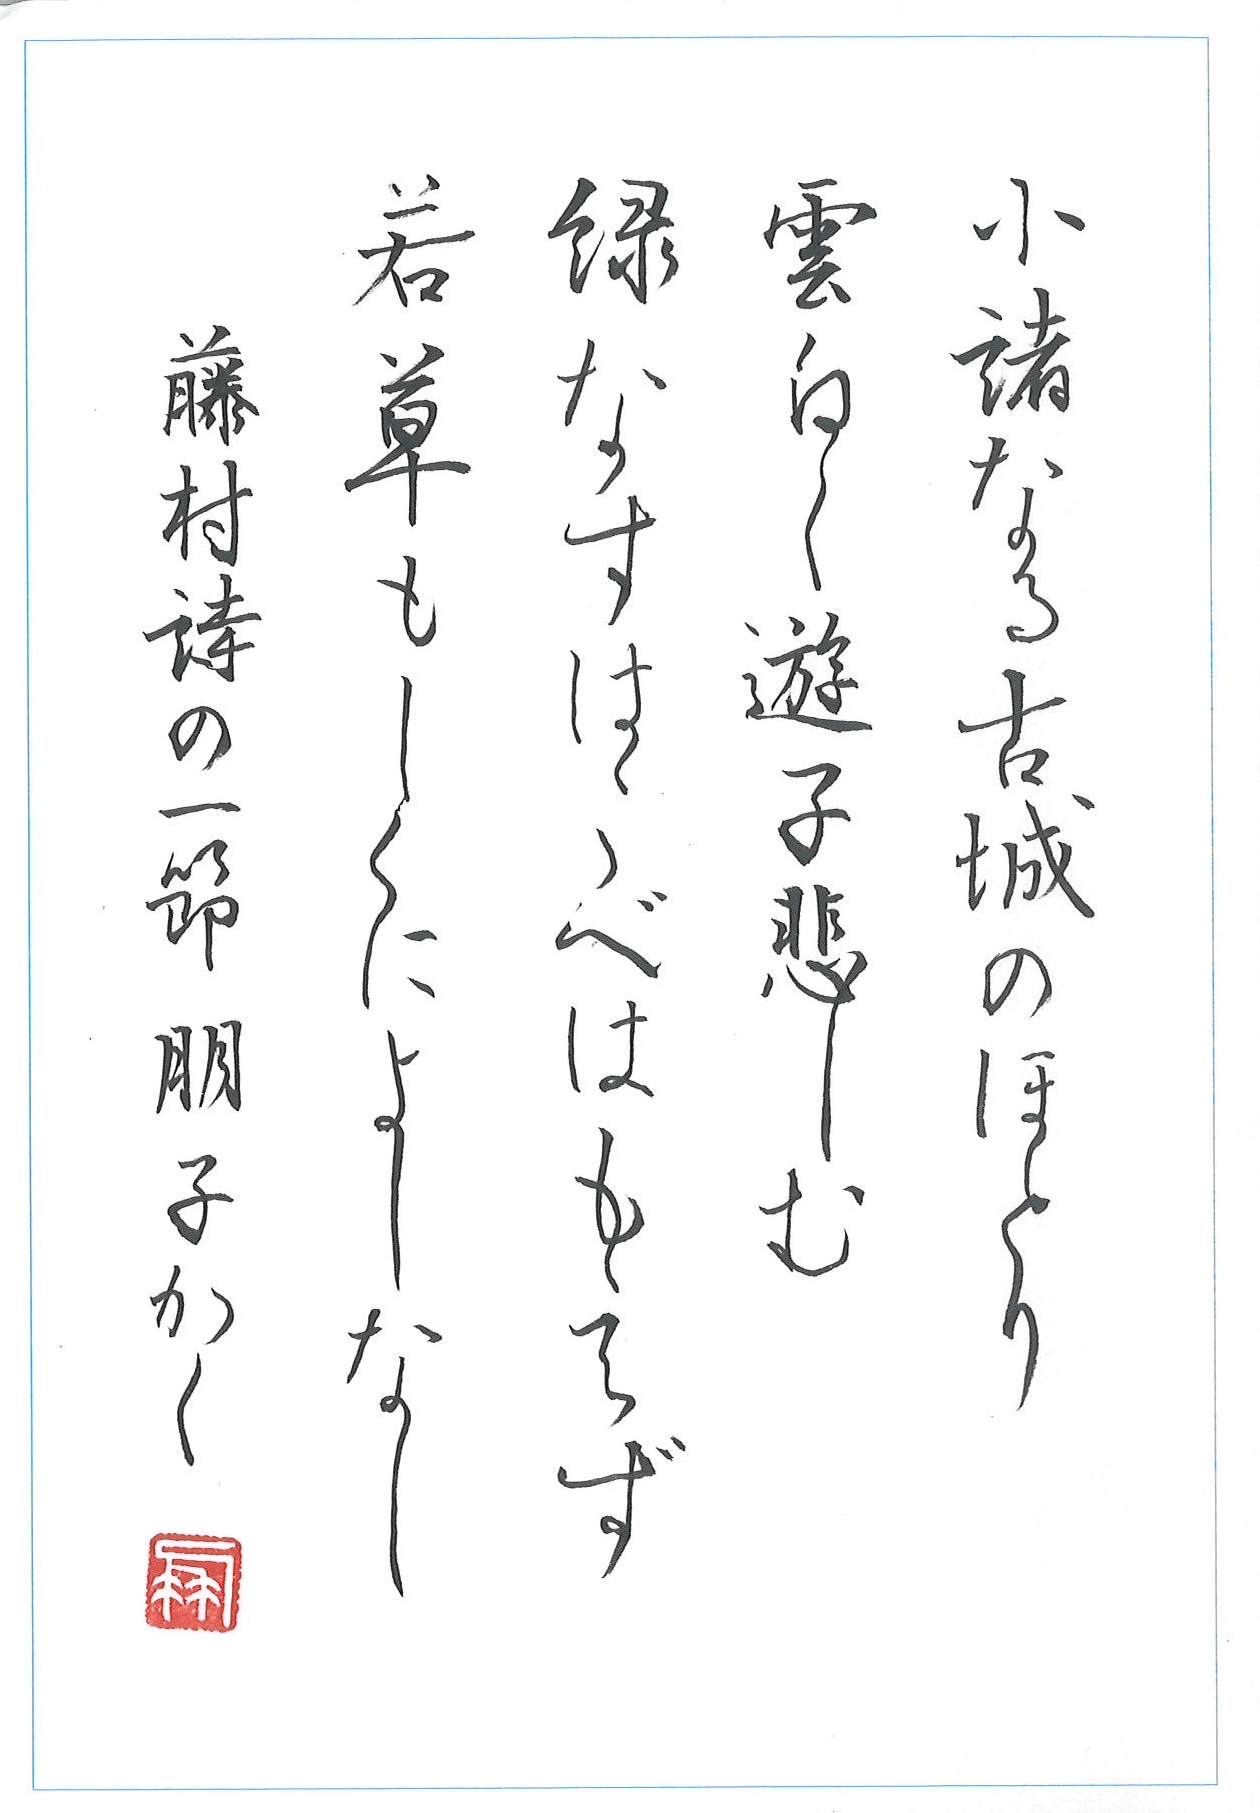 小諸なる古城のほとり
雲白く遊子悲しむ
緑なすはこべはもえず
若草もしくによしなし
藤村詩の一節 朋子かく